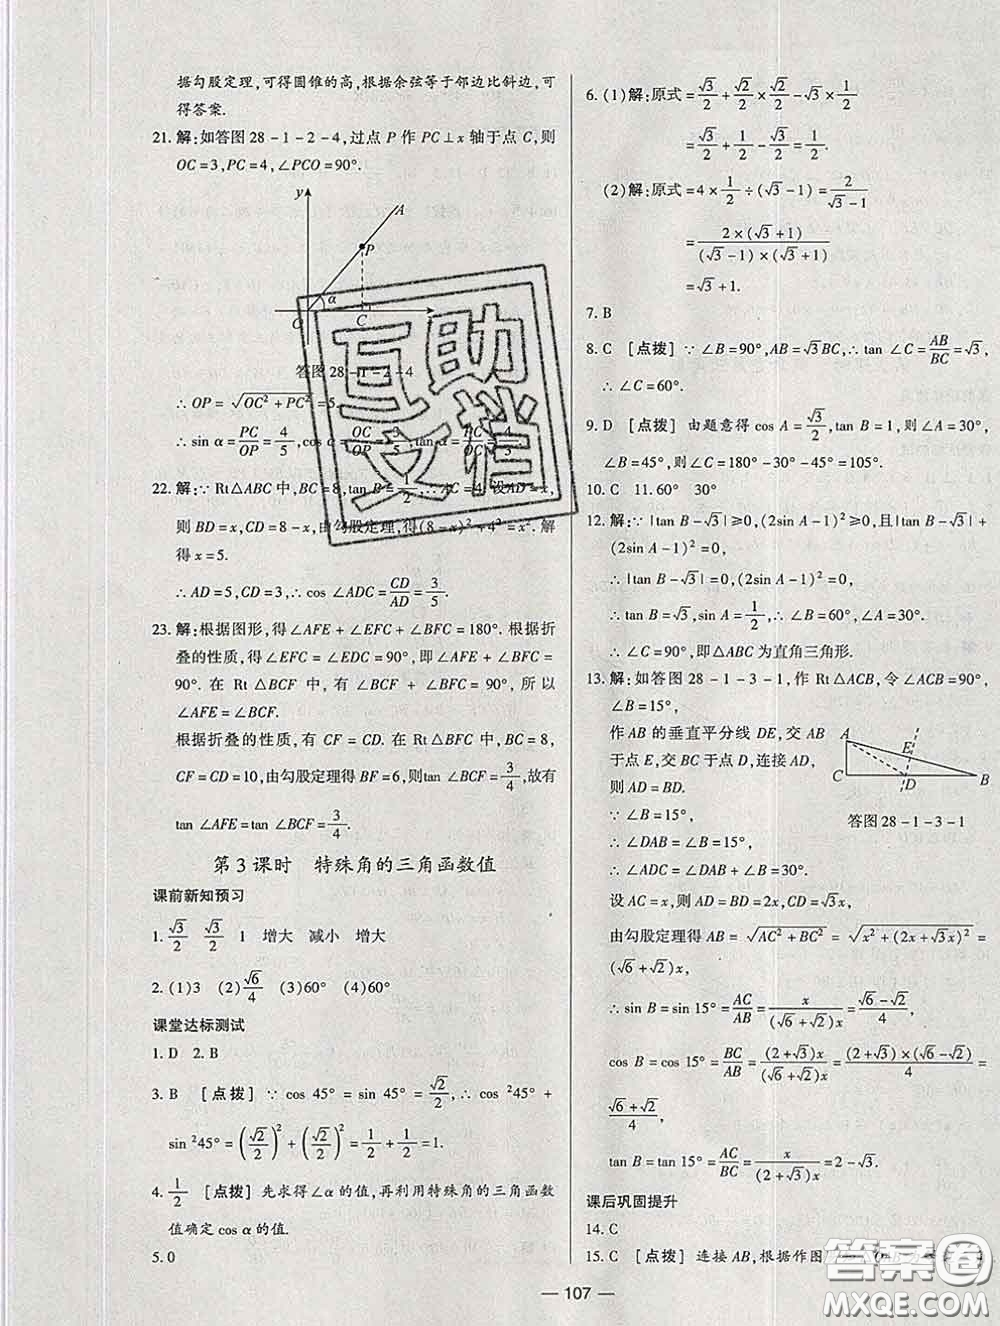 据勾股定理,可得圆锥的高,根据余弦等于邻边比斜边,可
得答案.
21. 解:如答图 28-1-2-4,过点 P 作 PC⊥x 轴于点 C,则
OC=3,PC=4,∠PCO=90°.
y
A
P
α
C
x
答图 28-1-2-4
∴ OP = √(OC²+PC²) = 5.
∴ sin α = PC/OP = 4/5, cos α = OC/OP = 3/5, tan α = PC/OC = 4/3.
22. 解:∵ Rt△ABC 中,BC=8,tan B = 1/2, ∴ AC=4. 设AD=x,
则 BD=x,CD=8-x,由勾股定理,得(8-x)²+4²=x². 解
得 x=5.
∴ AD=5,CD=3,∴ cos ∠ADC = CD/AD = 3/5.
23. 解:根据图形,得∠AFE+∠EFC+∠BFC=180°. 根据折
叠的性质,得∠EFC=∠EDC=90°,即∠AFE+∠BFC=
90°. 在 Rt△BCF 中,有∠BCF+∠BFC=90°,所以
∠AFE=∠BCF.
根据折叠的性质,有 CF=CD. 在 Rt△BFC 中,BC=8,
CF=CD=10,由勾股定理得 BF=6,则tan ∠BCF = 3/4,故有
tan ∠AFE = tan ∠BCF = 3/4.
第 3 课时 特殊角的三角函数值
课前新知预习
1. √3/2 √3/2 1 增大 减小 增大
2. (1)3 (2)√6/4 (3)60° (4)60°
课堂达标测试
1. D 2. B
3. B [点拨] ∵ cos 45° = sin 45° = √2/2, ∴ cos ²45° +
sin ²45° = (√2/2)² + (√2/2)² = 1/2 + 1/2 = 1.
4. 1/2 [点拨] 先求得∠α 的值,再利用特殊角的三角函数
值确定 cos α 的值.
5. 0
6. (1)解:原式 = √3/2 + √2/2 × √2/2 - √3 × 1/2
= √3/2 + 1/2 - √3/2 = 1/2.
(2)解:原式 = 4 × 1/2 ÷ (√3-1) = 2/(√3-1)
= 2×(√3+1)/((√3-1)×(√3+1))
= √3+1.
7. B
8. C [点拨] ∵ ∠B=90°,AB=√3BC,∴ tan ∠C = AB/BC = √3,
∴ ∠C=60°.
9. D [点拨] 由题意得 cos A = √3/2, tan B=1,则∠A=30°,
∠B=45°,则∠C=180°-30°-45°=105°.
10. C 11. 60° 30°
12. 解:∵ |tan B-√3|≥0,(2sin A-1)²≥0,且|tan B-√3|+
(2sin A-1)²=0,
∴ |tan B-√3|=0,(2sin A-1)²=0,
∴ tan B=√3,sin A = 1/2, ∴ ∠B=60°,∠A=30°.
∴ ∠C=90°,即△ABC 为直角三角形.
13. 解:如答图 28-1-3-1,作 Rt△ACB,令∠ACB=90°,
∠B=15°,
作 AB 的垂直平分线 DE,交 AB
于点 E,交 BC 于点 D,连接 AD,
则 AD=BD.
∵ ∠B=15°,
∴ ∠DAB=∠B=15°,
∴ ∠ADC=∠DAB+∠B=30°.
A
E
C
D
B
答图 28-1-3-1
设 AC=x,则 AD=BD=2x,CD=√3x,
由勾股定理得 AB = √(AC²+BC²) = √(x²+(2x+√3x)²) =
(√6+√2)x,
∴ sin B = sin 15° = AC/AB = x/((√6+√2)x) = (√6-√2)/4,
cos B = cos 15° = BC/AB = (2+√3)x/((√6+√2)x) = (2+√3)×(√6-√2)/4 =
(√6+√2)/4,
tan B = tan 15° = AC/BC = x/((2+√3)x) = 2-√3.
课后巩固提升
14. C
15. C [点拨] 连接 AB,根据作图
— 107 —
互助
文档
答案圈
MXQE.COM